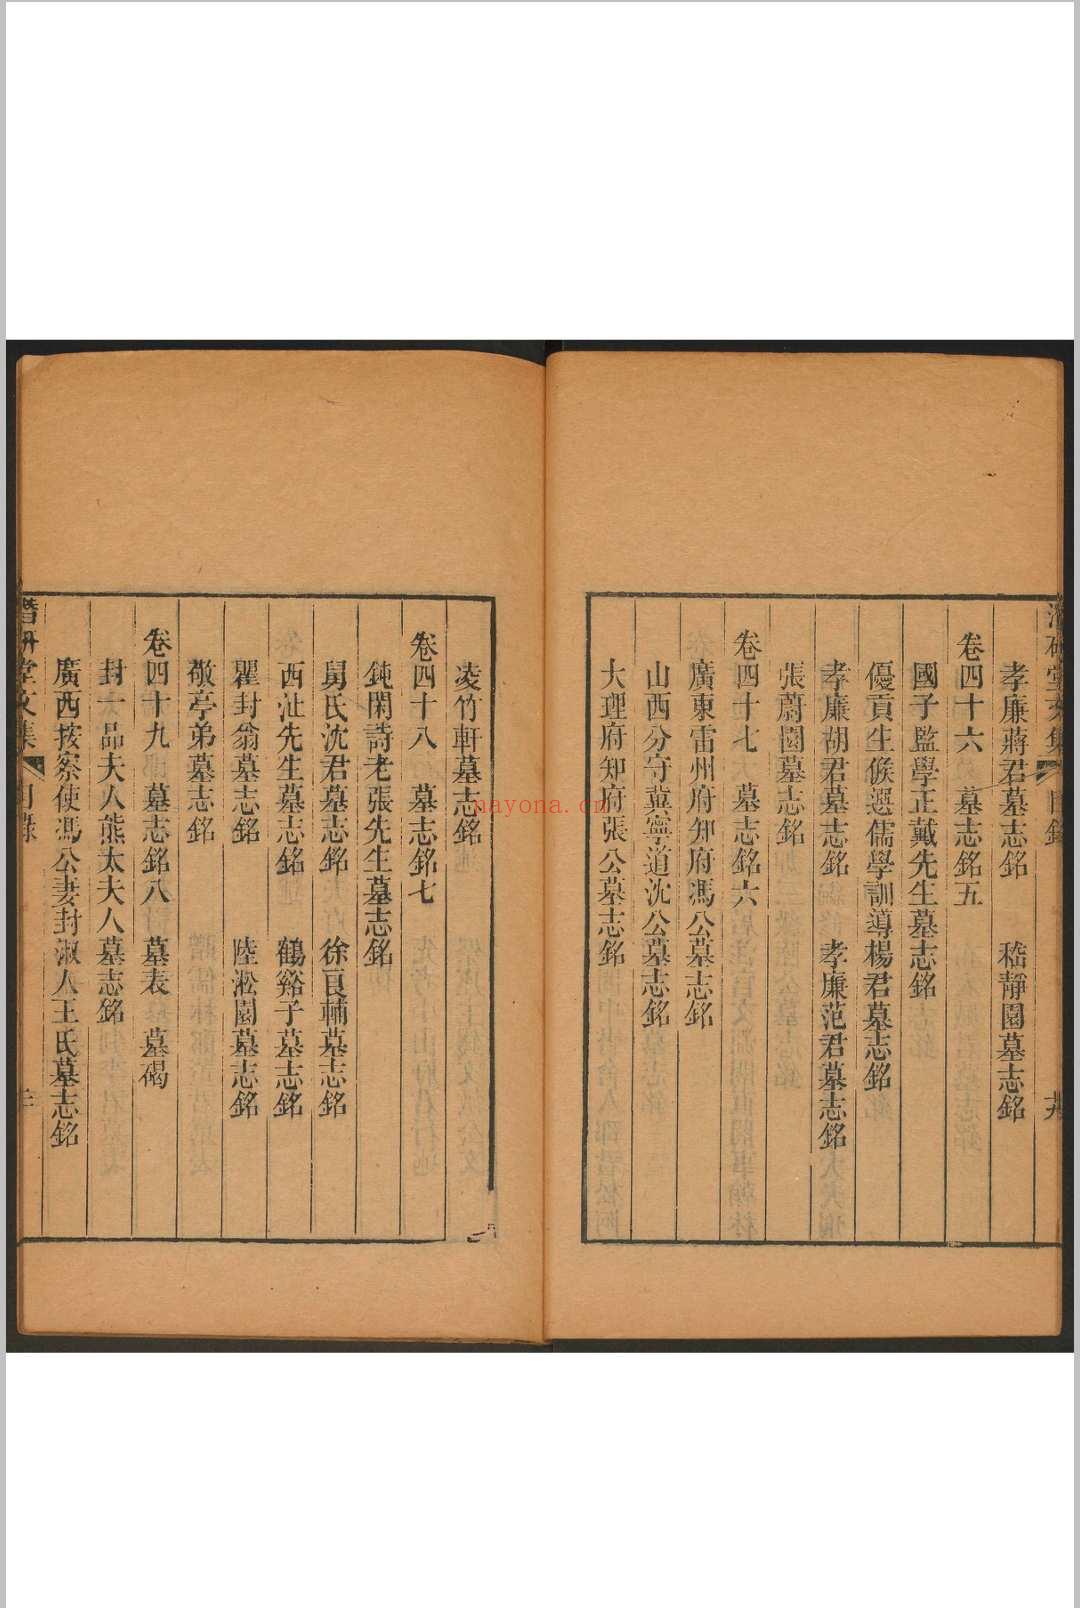 潛研堂文集 目錄
孝廉蔣君墓志銘 嵇靜園墓志銘
卷四十六 墓志銘五
國子監學正戴先生墓志銘
優貢生候選儒學訓導楊君墓志銘
孝廉胡君墓志銘 孝廉范君墓志銘
張蔚園墓志銘
卷四十七 墓志銘六
廣東雷州府知府馮公墓志銘
山西分守冀寧道沈公墓志銘
大理府知府張公墓志銘
凌竹軒墓志銘
卷四十八 墓志銘七
鈍閑詩老張先生墓志銘
舅氏沈君墓志銘 徐良輔墓志銘
西沚先生墓志銘 鶴谿子墓志銘
瞿封翁墓志銘 陸淞園墓志銘
敬亭弟墓志銘
卷四十九 墓志銘八 墓表 墓碣
封一品夫人熊太夫人墓志銘
廣西按察使馮公妻封淑人王氏墓志銘
潛研堂文集 目錄
nayona.cn